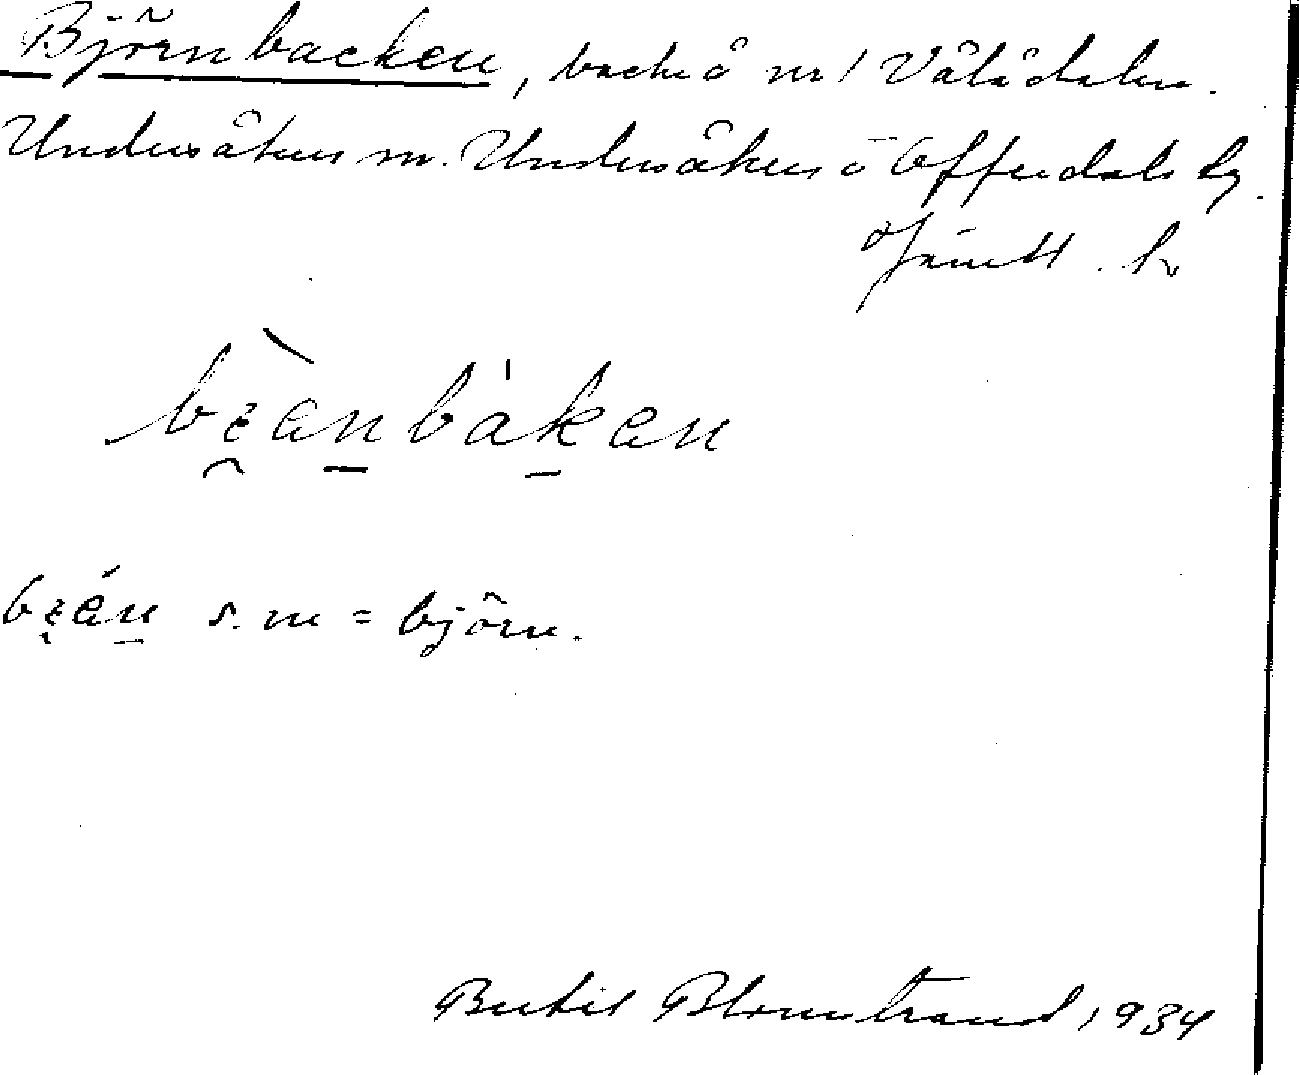 Björnbacken, backe å nr / Vålådalen.
Undersåkers sn. Undersåkers o Offerdals tg.
Jämtl. l.
bʒanbákan
bʒán s. m = björn.
Bertil Blomstrand, 1934